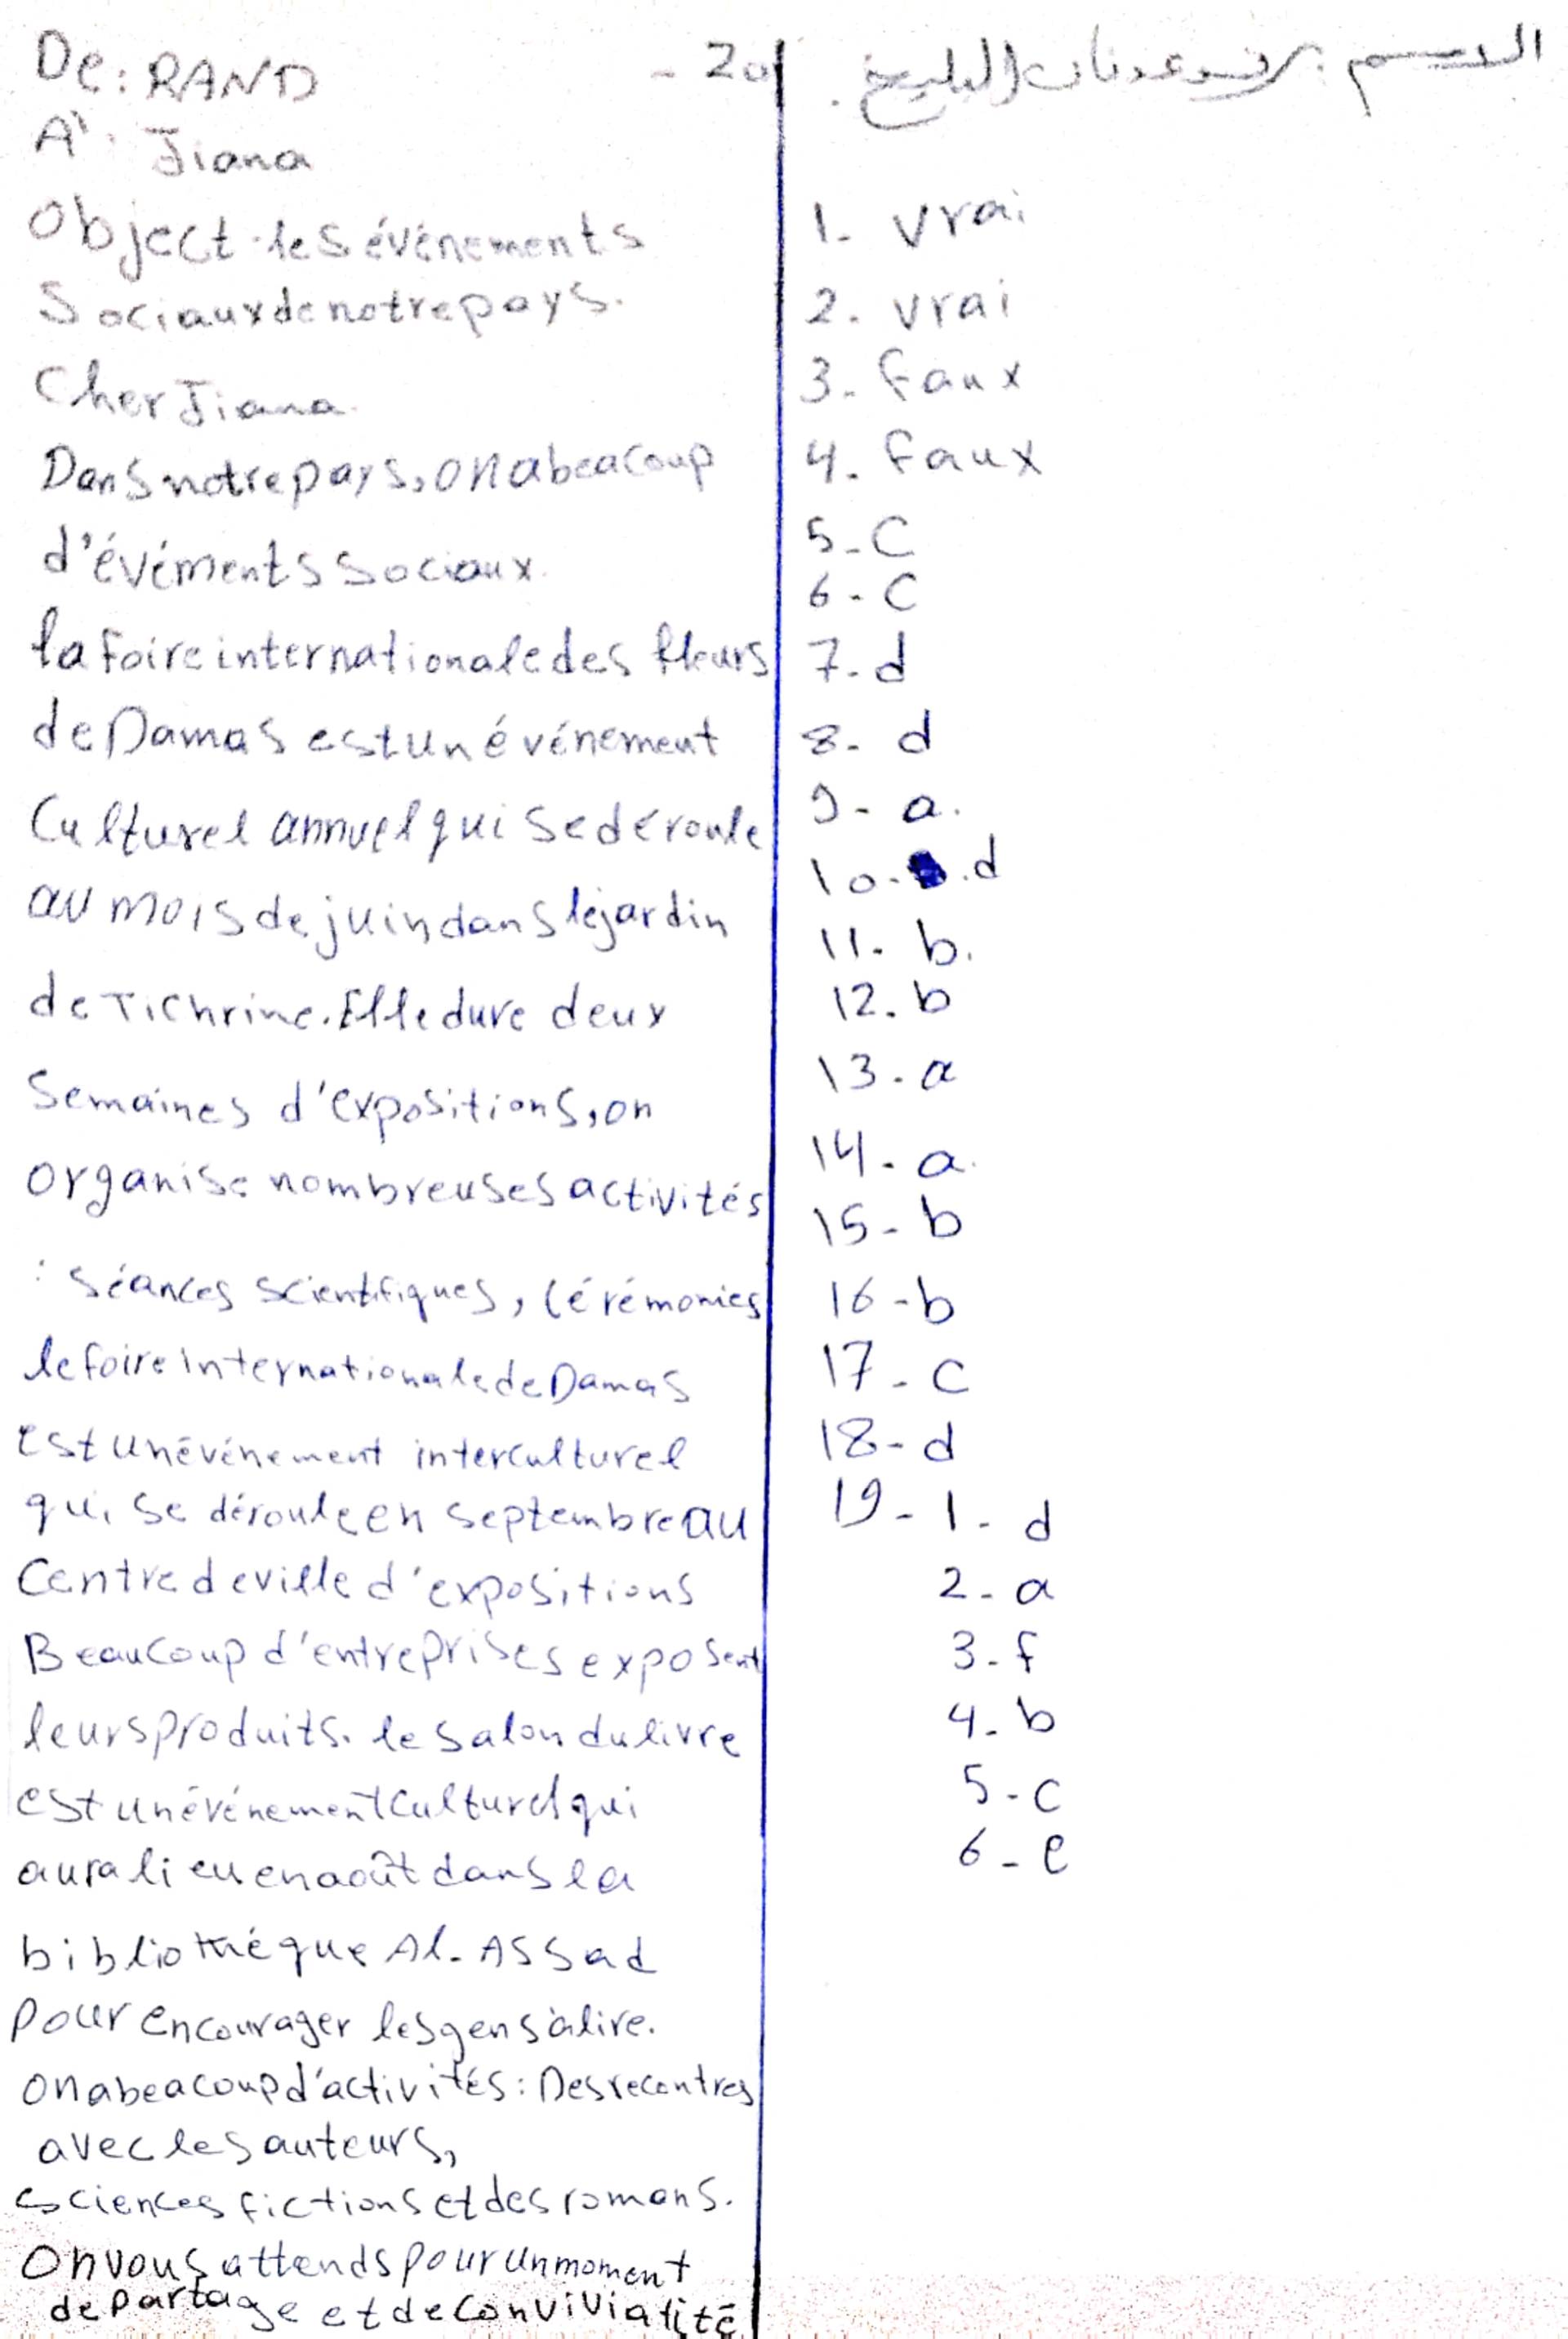 الاسم: رند عدنان البليخ.
1- vrai
2. vrai
3- faux
4. faux
5-C
6-C
7-d
8- d
9- a.
10- .d
11- b.
12. b
13-a
14-a.
15-b
16-b
17-c
18-d
19-1-d
2-a
3-f
4-b
5-c
6-e
-20
De: RAND
A: Jiana
Object: les événements
Sociaux de notre pays.
Cher Jiana.
Dans notre pays, on a beacoup
d'événents sociaux.
la foire internationale des fleurs
de Damas est un événement
Culturel annuel qui se déroule
au mois de juin dans le jardin
de Tichrine. Elle dure deux
Semaines d'expositions, on
organise nombreuses activités
: Séances scientifiques, cérémonies
le foire internationale de Damas
est un événement interculturel
qui se déroule en septembre au
Centre de ville d'expositions
Beaucoup d'entreprises exposent
leurs produits. le salon du livre
est un événement culturel qui
aura lieu en août dans la
bibliothèque Al-Assad
pour encourager les gens à lire.
on a beacoup d'activités: Des recontres
avec les auteurs,
sciences fictions et des romans.
On vous attends pour un moment
de partage et de convivialité